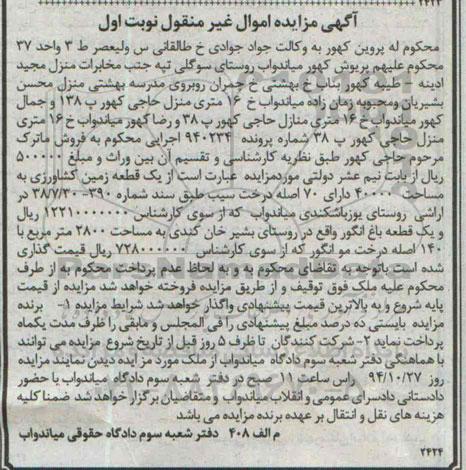 ۲۴۲۳
آگهی مزایده اموال غیر منقول نوبت اول
محکوم له پروین کهور به وکالت جواد جوادی خ طالقانی س ولیعصر ط ۳ واحد ۳۷
محکوم علیهم پریوش کهور میاندواب روستای سوگلی تپه جنب مخابرات منزل مجید
ادینه ۲- طیبه کهور بناب خ بهشتی خ چمران روبروی مدرسه بهشتی منزل محسن
بشیریان ومحبوبه زمان زاده میاندواب خ ۱۶ متری منزل حاجی کهور پ ۱۳۸ و جمال
کهور میاندواب خ ۱۶ متری منازل حاجی کهور پ ۳۸ و رضا کهور میاندواب خ ۱۶ متری
منزل حاجی کهور پ ۳۸ شماره پرونده ۹۴۰۲۳۴ اجرایی محکوم به فروش ماترک
مرحوم حاجی کهور طبق نظریه کارشناسی و تقسیم آن بین وراث و مبلغ ۵۰۰۰۰۰
ریال از بابت نیم عشر دولتی موردمزایده عبارت است از یک قطعه زمین کشاورزی به
مساحت ۴۰۰۰۰ دارای ۷۰ اصله درخت سیب طبق سند شماره ۳۹۰-۳۸/۷/۳۰ در
اراشی روستای یوزباشکندی میاندواب که از سوی کارشناس ۱۲۲۱۰۰۰۰۰۰۰ ریال
و یک قطعه باغ انگور واقع در روستای بشیر خان کندی به مساحت ۲۸۰۰ متر مربع با
۱۴۰ اصله درخت مو انگور که از سوی کارشناس ۷۲۸۰۰۰۰۰۰ ریال قیمت گذاری
شده است باتوجه به تقاضای محکوم به و به لحاظ عدم پرداخت محکوم به از طرف
محکوم علیه ملک فوق توقیف و از طریق مزایده فروخته خواهد شد مزایده از قیمت
پایه شروع و به بالاترین قیمت پیشنهادی واگذار خواهد شد شرایط مزایده ۱- برنده
مزایده بایستی ده درصد مبلغ پیشنهادی را فی المجلس و مابقی را ظرف مدت یکماه
پرداخت نماید ۲- شرکت کنندگان تا ظرف ۵ روز قبل از تاریخ شروع مزایده می توانند
با هماهنگی دفتر شعبه سوم دادگاه میاندواب از ملک مورد مزایده دیدن نمایند مزایده
روز ۹۴/۱۰/۲۷ راس ساعت ۱۱ صبح در دفتر شعبه سوم دادگاه میاندواب با حضور
دادستانی دادسرای عمومی و انقلاب میاندواب و متقاضیان برگزار خواهد شد ضمنا کلیه
هزینه های نقل و انتقال بر عهده برنده مزایده می باشد
م الف ۴۰۸ دفتر شعبه سوم دادگاه حقوقی میاندواب
۲۴۲۴